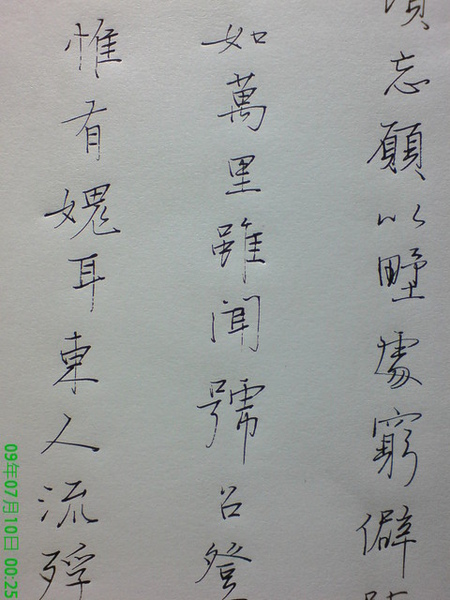 忘願以野處窮僻
如萬里雖聞號召登
惟有媿耳東人流殍
09年07月10日 00:25